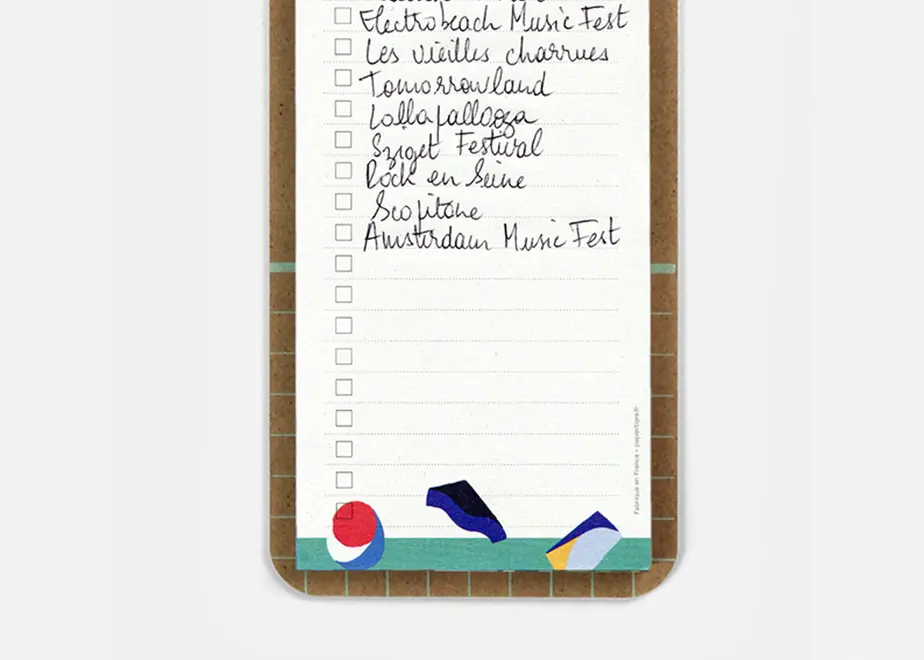 Electrobeach Music Fest
Les vieilles charrues
Tomorrowland
Lollapallooza
Sziget Festival
Rock en Seine
Scopitone
Amsterdam Music Fest
Fabriqué en France • papiertigre.fr